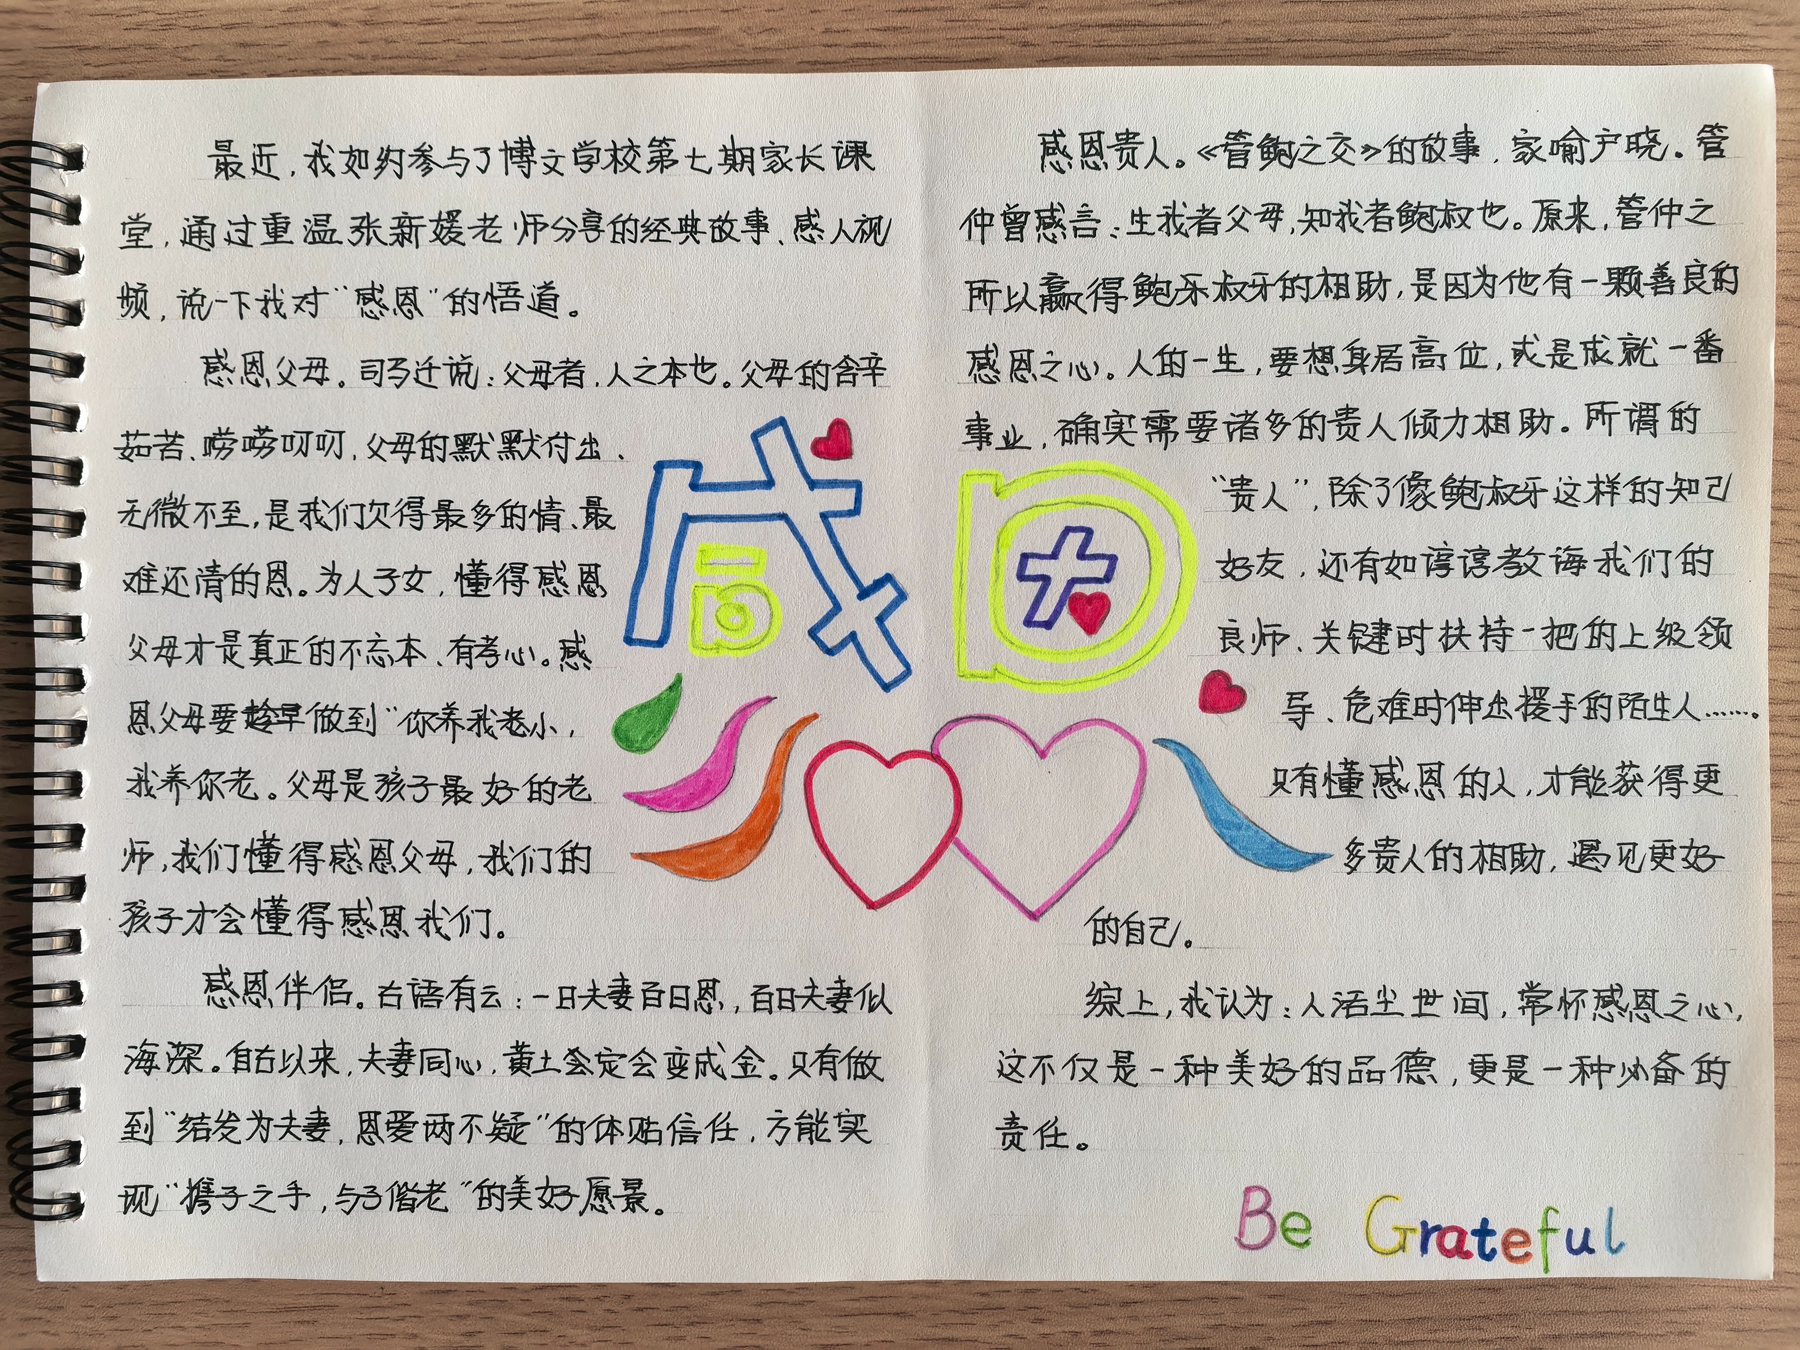 最近，我如约参与了博文学校第七期家长课
堂，通过重温张新媛老师分享的经典故事、感人视
频，说一下我对“感恩”的悟道。
感恩父母。司马迁说：父母者，人之本也。父母的含辛
茹苦、唠唠叨叨，父母的默默付出、
无微不至，是我们欠得最多的情、最
难还清的恩。为人子女，懂得感恩
父母才是真正的不忘本、有孝心。感
恩父母要趁早做到“你养我老小，
我养你老。父母是孩子最好的老
师，我们懂得感恩父母，我们的
孩子才会懂得感恩我们。
感恩伴侣。古语有云：一日夫妻百日恩，百日夫妻似
海深。自古以来，夫妻同心，黄土会定会变成金。只有做
到“结发为夫妻，恩爱两不疑”的体贴信任，方能实
现“携子之手，与子偕老”的美好愿景。
感恩
感恩贵人。《管鲍之交》的故事，家喻户晓。管
仲曾感言：生我者父母，知我者鲍叔也。原来，管仲之
所以赢得鲍牙叔牙的相助，是因为他有一颗善良的
感恩之心。人的一生，要想身居高位，或是成就一番
事业，确实需要诸多的贵人倾力相助。所谓的
“贵人”，除了像鲍叔牙这样的知己
好友，还有如谆谆教诲我们的
良师、关键时扶持一把的上级领
导、危难时伸出援手的陌生人……。
只有懂感恩的人，才能获得更
多贵人的相助，遇见更好
的自己。
综上，我认为：人活尘世间，常怀感恩之心，
这不仅是一种美好的品德，更是一种必备的
责任。
Be Grateful